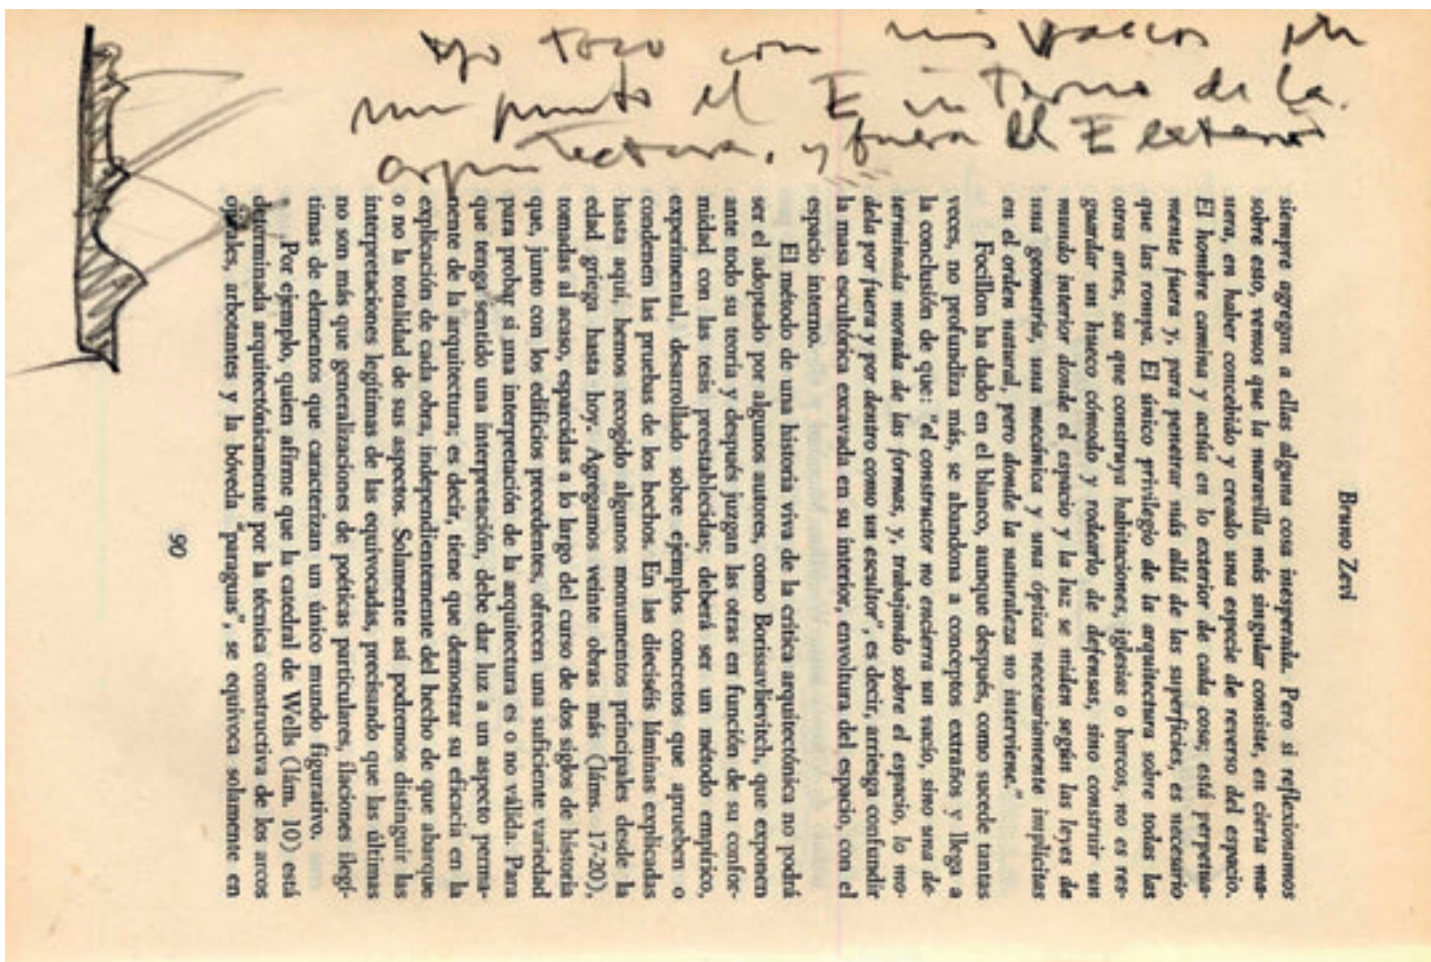 yo toco con mis vacios en
un punto el E interno de la
arquitectura, y fuera el E externo
Bruno Zevi
siempre agregan a ellas alguna cosa inesperada. Pero si reflexionamos
sobre esto, vemos que la maravilla más singular consiste, en cierta ma-
nera, en haber concebido y creado una especie de reverso del espacio.
El hombre camina y actúa en lo exterior de cada cosa; está perpetua-
mente fuera y, para penetrar más allá de las superficies, es necesario
que las rompa. El único privilegio de la arquitectura sobre todas las
otras artes, sea que construya habitaciones, iglesias o barcos, no es res-
guardar un hueco cómodo y rodearlo de defensas, sino construir un
mundo interior donde el espacio y la luz se miden según las leyes de
una geometría, una mecánica y una óptica necesariamente implícitas
en el orden natural, pero donde la naturaleza no interviene."
Focillon ha dado en el blanco, aunque después, como sucede tantas
veces, no profundiza más, se abandona a conceptos extraños y llega a
la conclusión de que: "el constructor no encierra un vacío, sino una de-
terminada morada de las formas, y, trabajando sobre el espacio, lo mo-
dela por fuera y por dentro como un escultor", es decir, arriesga confundir
la masa escultórica excavada en su interior, envoltura del espacio, con el
espacio interno.
El método de una historia viva de la crítica arquitectónica no podrá
ser el adoptado por algunos autores, como Borissavlievitch, que exponen
ante todo su teoría y después juzgan las otras en función de su confor-
midad con las tesis preestablecidas; deberá ser un método empírico,
experimental, desarrollado sobre ejemplos concretos que aprueben o
condenen las pruebas de los hechos. En las dieciséis láminas explicadas
hasta aquí, hemos recogido algunos monumentos principales desde la
edad griega hasta hoy. Agregamos veinte obras más (láms. 17-20),
tomadas al acaso, esparcidas a lo largo del curso de dos siglos de historia
que, junto con los edificios precedentes, ofrecen una suficiente variedad
para probar si una interpretación de la arquitectura es o no válida. Para
que tenga sentido una interpretación, debe dar luz a un aspecto perma-
nente de la arquitectura; es decir, tiene que demostrar su eficacia en la
explicación de cada obra, independientemente del hecho de que abarque
o no la totalidad de sus aspectos. Solamente así podremos distinguir las
interpretaciones legítimas de las equivocadas, precisando que las últimas
no son más que generalizaciones de poéticas particulares, ilaciones ilegí-
timas de elementos que caracterizan un único mundo figurativo.
Por ejemplo, quien afirme que la catedral de Wells (lám. 10) está
determinada arquitectónicamente por la técnica constructiva de los arcos
ojivales, arbotantes y la bóveda "paraguas", se equivoca solamente en
90